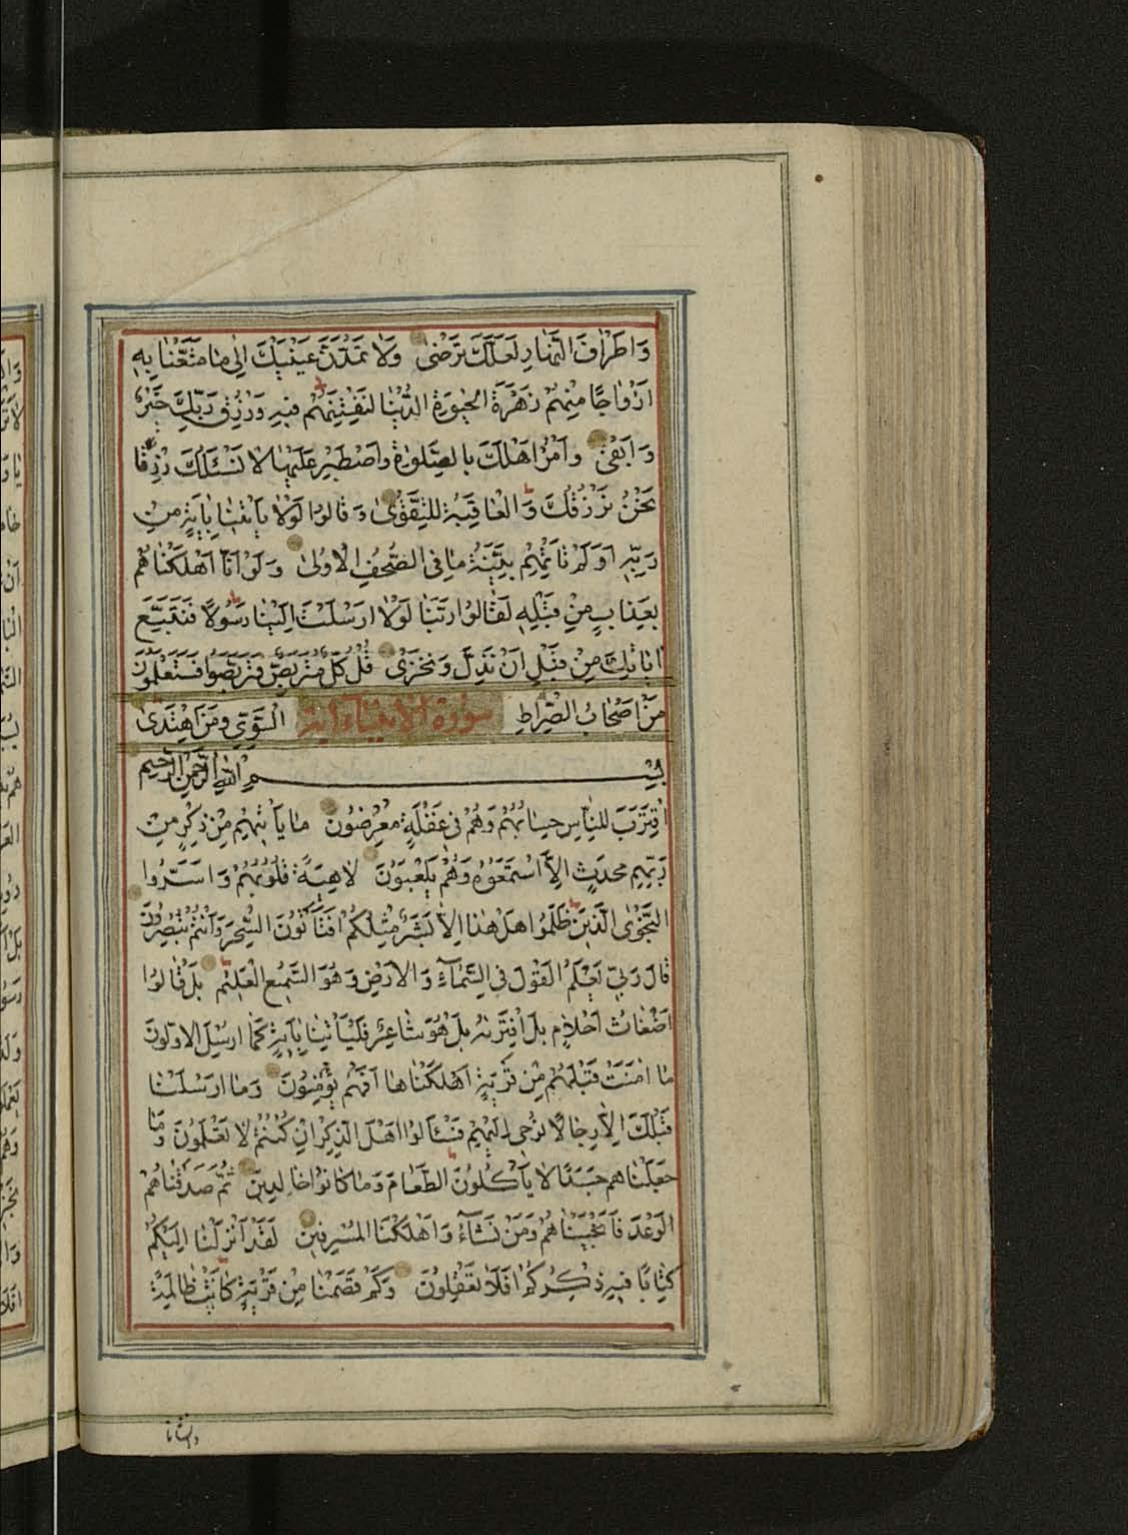 وَاَطْرَافَ النَّهَارِ لَعَلَّكَ تَرْضٰى وَلَا تَمُدَّنَّ عَيْنَيْكَ اِلٰى مَا مَتَّعْنَا بِهٖ
اَزْوَاجًا مِنْهُمْ زَهْرَةَ الْحَيٰوةِ الدُّنْيَا لِنَفْتِنَهُمْ فِيهِ وَرِزْقُ رَبِّكَ خَيْرٌ
وَاَبْقٰى وَأْمُرْ اَهْلَكَ بِالصَّلٰوةِ وَاصْطَبِرْ عَلَيْهَا لَا نَسْئَلُكَ رِزْقًا
نَحْنُ نَرْزُقُكَ وَالْعَاقِبَةُ لِلتَّقْوٰى وَقَالُوا لَوْلَا يَأْتِينَا بِاٰيَةٍ مِنْ
رَبِّهِ اَوَلَمْ تَأْتِهِمْ بَيِّنَةُ مَا فِى الصُّحُفِ الْاُولٰى وَلَوْ اَنَّا اَهْلَكْنَاهُمْ
بِعَذَابٍ مِنْ قَبْلِهِ لَقَالُوا رَبَّنَا لَوْلَا اَرْسَلْتَ اِلَيْنَا رَسُولًا فَنَتَّبِعَ
اٰيَاتِكَ مِنْ قَبْلِ اَنْ نَذِلَّ وَنَخْزٰى قُلْ كُلٌّ مُتَرَبِّصٌ فَتَرَبَّصُوا فَسَتَعْلَمُونَ
مَنْ اَصْحَابُ الصِّرَاطِ سورة الانبياء اية السَّوِيِّ وَمَنِ اهْتَدٰى
بِسْمِ اللهِ الرَّحْمٰنِ الرَّحِيمِ
اِقْتَرَبَ لِلنَّاسِ حِسَابُهُمْ وَهُمْ فِى غَفْلَةٍ مُعْرِضُونَ مَا يَأْتِيهِمْ مِنْ ذِكْرٍ مِنْ
رَبِّهِمْ مُحْدَثٍ اِلَّا اسْتَمَعُوهُ وَهُمْ يَلْعَبُونَ لَاهِيَةً قُلُوبُهُمْ وَاَسَرُّوا
النَّجْوَى الَّذِينَ ظَلَمُوا هَلْ هٰذَا اِلَّا بَشَرٌ مِثْلُكُمْ اَفَتَأْتُونَ السِّحْرَ وَاَنْتُمْ تُبْصِرُونَ
قَالَ رَبِّى يَعْلَمُ الْقَوْلَ فِى السَّمَاءِ وَالْاَرْضِ وَهُوَ السَّمِيعُ الْعَلِيمُ بَلْ قَالُوا
اَضْغَاثُ اَحْلَامٍ بَلِ افْتَرٰيهُ بَلْ هُوَ شَاعِرٌ فَلْيَأْتِنَا بِاٰيَةٍ كَمَا اُرْسِلَ الْاَوَّلُونَ
مَا اٰمَنَتْ قَبْلَهُمْ مِنْ قَرْيَةٍ اَهْلَكْنَاهَا اَفَهُمْ يُؤْمِنُونَ وَمَا اَرْسَلْنَا
قَبْلَكَ اِلَّا رِجَالًا نُوحِى اِلَيْهِمْ فَسْـَٔلُوا اَهْلَ الذِّكْرِ اِنْ كُنْتُمْ لَا تَعْلَمُونَ وَمَا
جَعَلْنَاهُمْ جَسَدًا لَا يَأْكُلُونَ الطَّعَامَ وَمَا كَانُوا خَالِدِينَ ثُمَّ صَدَقْنَاهُمُ
الْوَعْدَ فَاَنْجَيْنَاهُمْ وَمَنْ نَشَاءُ وَاَهْلَكْنَا الْمُسْرِفِينَ لَقَدْ اَنْزَلْنَا اِلَيْكُمْ
كِتَابًا فِيهِ ذِكْرُكُمْ اَفَلَا تَعْقِلُونَ وَكَمْ قَصَمْنَا مِنْ قَرْيَةٍ كَانَتْ ظَالِمَةً
وانشانا